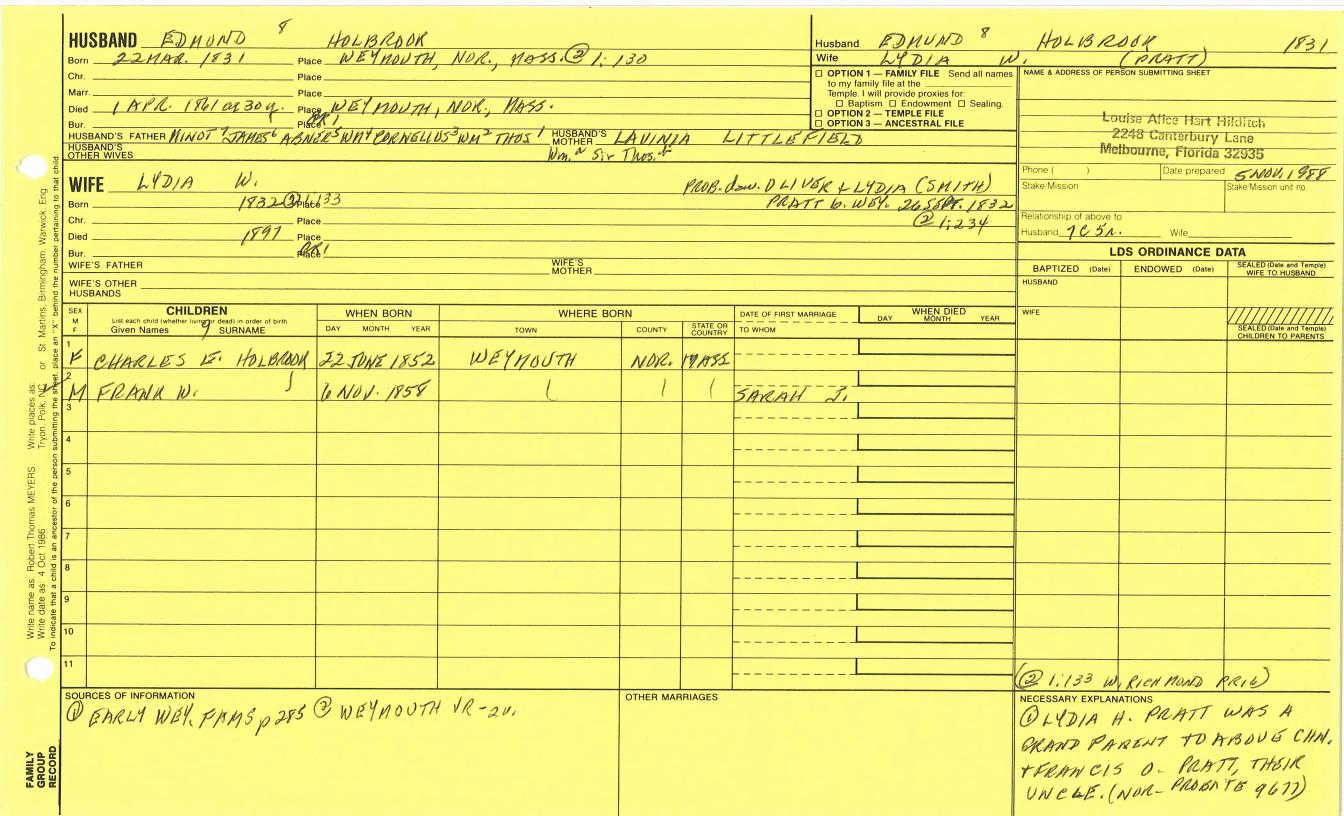 HUSBAND EDMUND 8 HOLBROOK
Born 22 MAR. 1831 Place WEYMOUTH, NOR, MASS. ② 1:130
Chr. Place
Marr. Place
Died 1 APR. 1861 ag 30 y. Place WEYMOUTH, NOR, MASS.
Bur. Place
HUSBAND'S FATHER MINOT 7 JAMES 6 ABNER 5 WM 4 CORNELIUS 3 WM 2 THOS 1 HUSBAND'S MOTHER LAVINIA LITTLEFIELD
HUSBAND'S OTHER WIVES Wm. a Sir Thos. b
WIFE LYDIA W. PROB. dau. OLIVER & LYDIA (SMITH)
Born 1832 ② 1:133 Place PRATT b. WEY. 26 SEPT. 1832
Chr. Place ② 1:234
Died 1897 Place
Bur. Place
WIFE'S FATHER WIFE'S MOTHER
WIFE'S OTHER HUSBANDS
Husband EDMUND 8 HOLBROOK 1831
Wife LYDIA W. (PRATT)
☐ OPTION 1 — FAMILY FILE Send all names
to my family file at the
Temple. I will provide proxies for:
☐ Baptism ☐ Endowment ☐ Sealing.
☐ OPTION 2 — TEMPLE FILE
☐ OPTION 3 — ANCESTRAL FILE
NAME & ADDRESS OF PERSON SUBMITTING SHEET
Louise Alice Hart Hilditch
2248 Canterbury Lane
Melbourne, Florida 32935
Phone ( ) Date prepared 5 NOV. 1988
Stake/Mission Stake/Mission unit no.
Relationship of above to
Husband 7C5r. Wife
LDS ORDINANCE DATA
BAPTIZED (Date) ENDOWED (Date) SEALED (Date and Temple) WIFE TO HUSBAND
HUSBAND
WIFE
SEALED (Date and Temple) CHILDREN TO PARENTS
SEX M F
CHILDREN
List each child (whether living or dead) in order of birth
Given Names 9 SURNAME
WHEN BORN
DAY MONTH YEAR
WHERE BORN
TOWN COUNTY STATE OR COUNTRY
DATE OF FIRST MARRIAGE
TO WHOM
WHEN DIED
DAY MONTH YEAR
1 CHARLES E. HOLBROOK 22 JUNE 1852 WEYMOUTH NOR. MASS
2 M FRANK W. 6 NOV. 1858 SARAH J.
3
4
5
6
7
8
9
10
11
(② 1:133 W, RICHMOND PRIE)
SOURCES OF INFORMATION
① EARLY WEY. FAMS p 285 ② WEYMOUTH VR-2v.
OTHER MARRIAGES
NECESSARY EXPLANATIONS
① LYDIA H. PRATT WAS A
GRAND PARENT TO ABOVE CHN.
& FRANCIS O. PRATT, THEIR
UNCLE. (NOR- PROBATE 9677)
Write name as: Robert Thomas MEYERS. Write places as: Tryon, Polk, NC or St Martins, Birmingham, Warwick, Eng
Write date as: 4 Oct 1986
To indicate that a child is an ancestor of the person submitting the sheet, place an "X" behind the number pertaining to that child
FAMILY GROUP RECORD